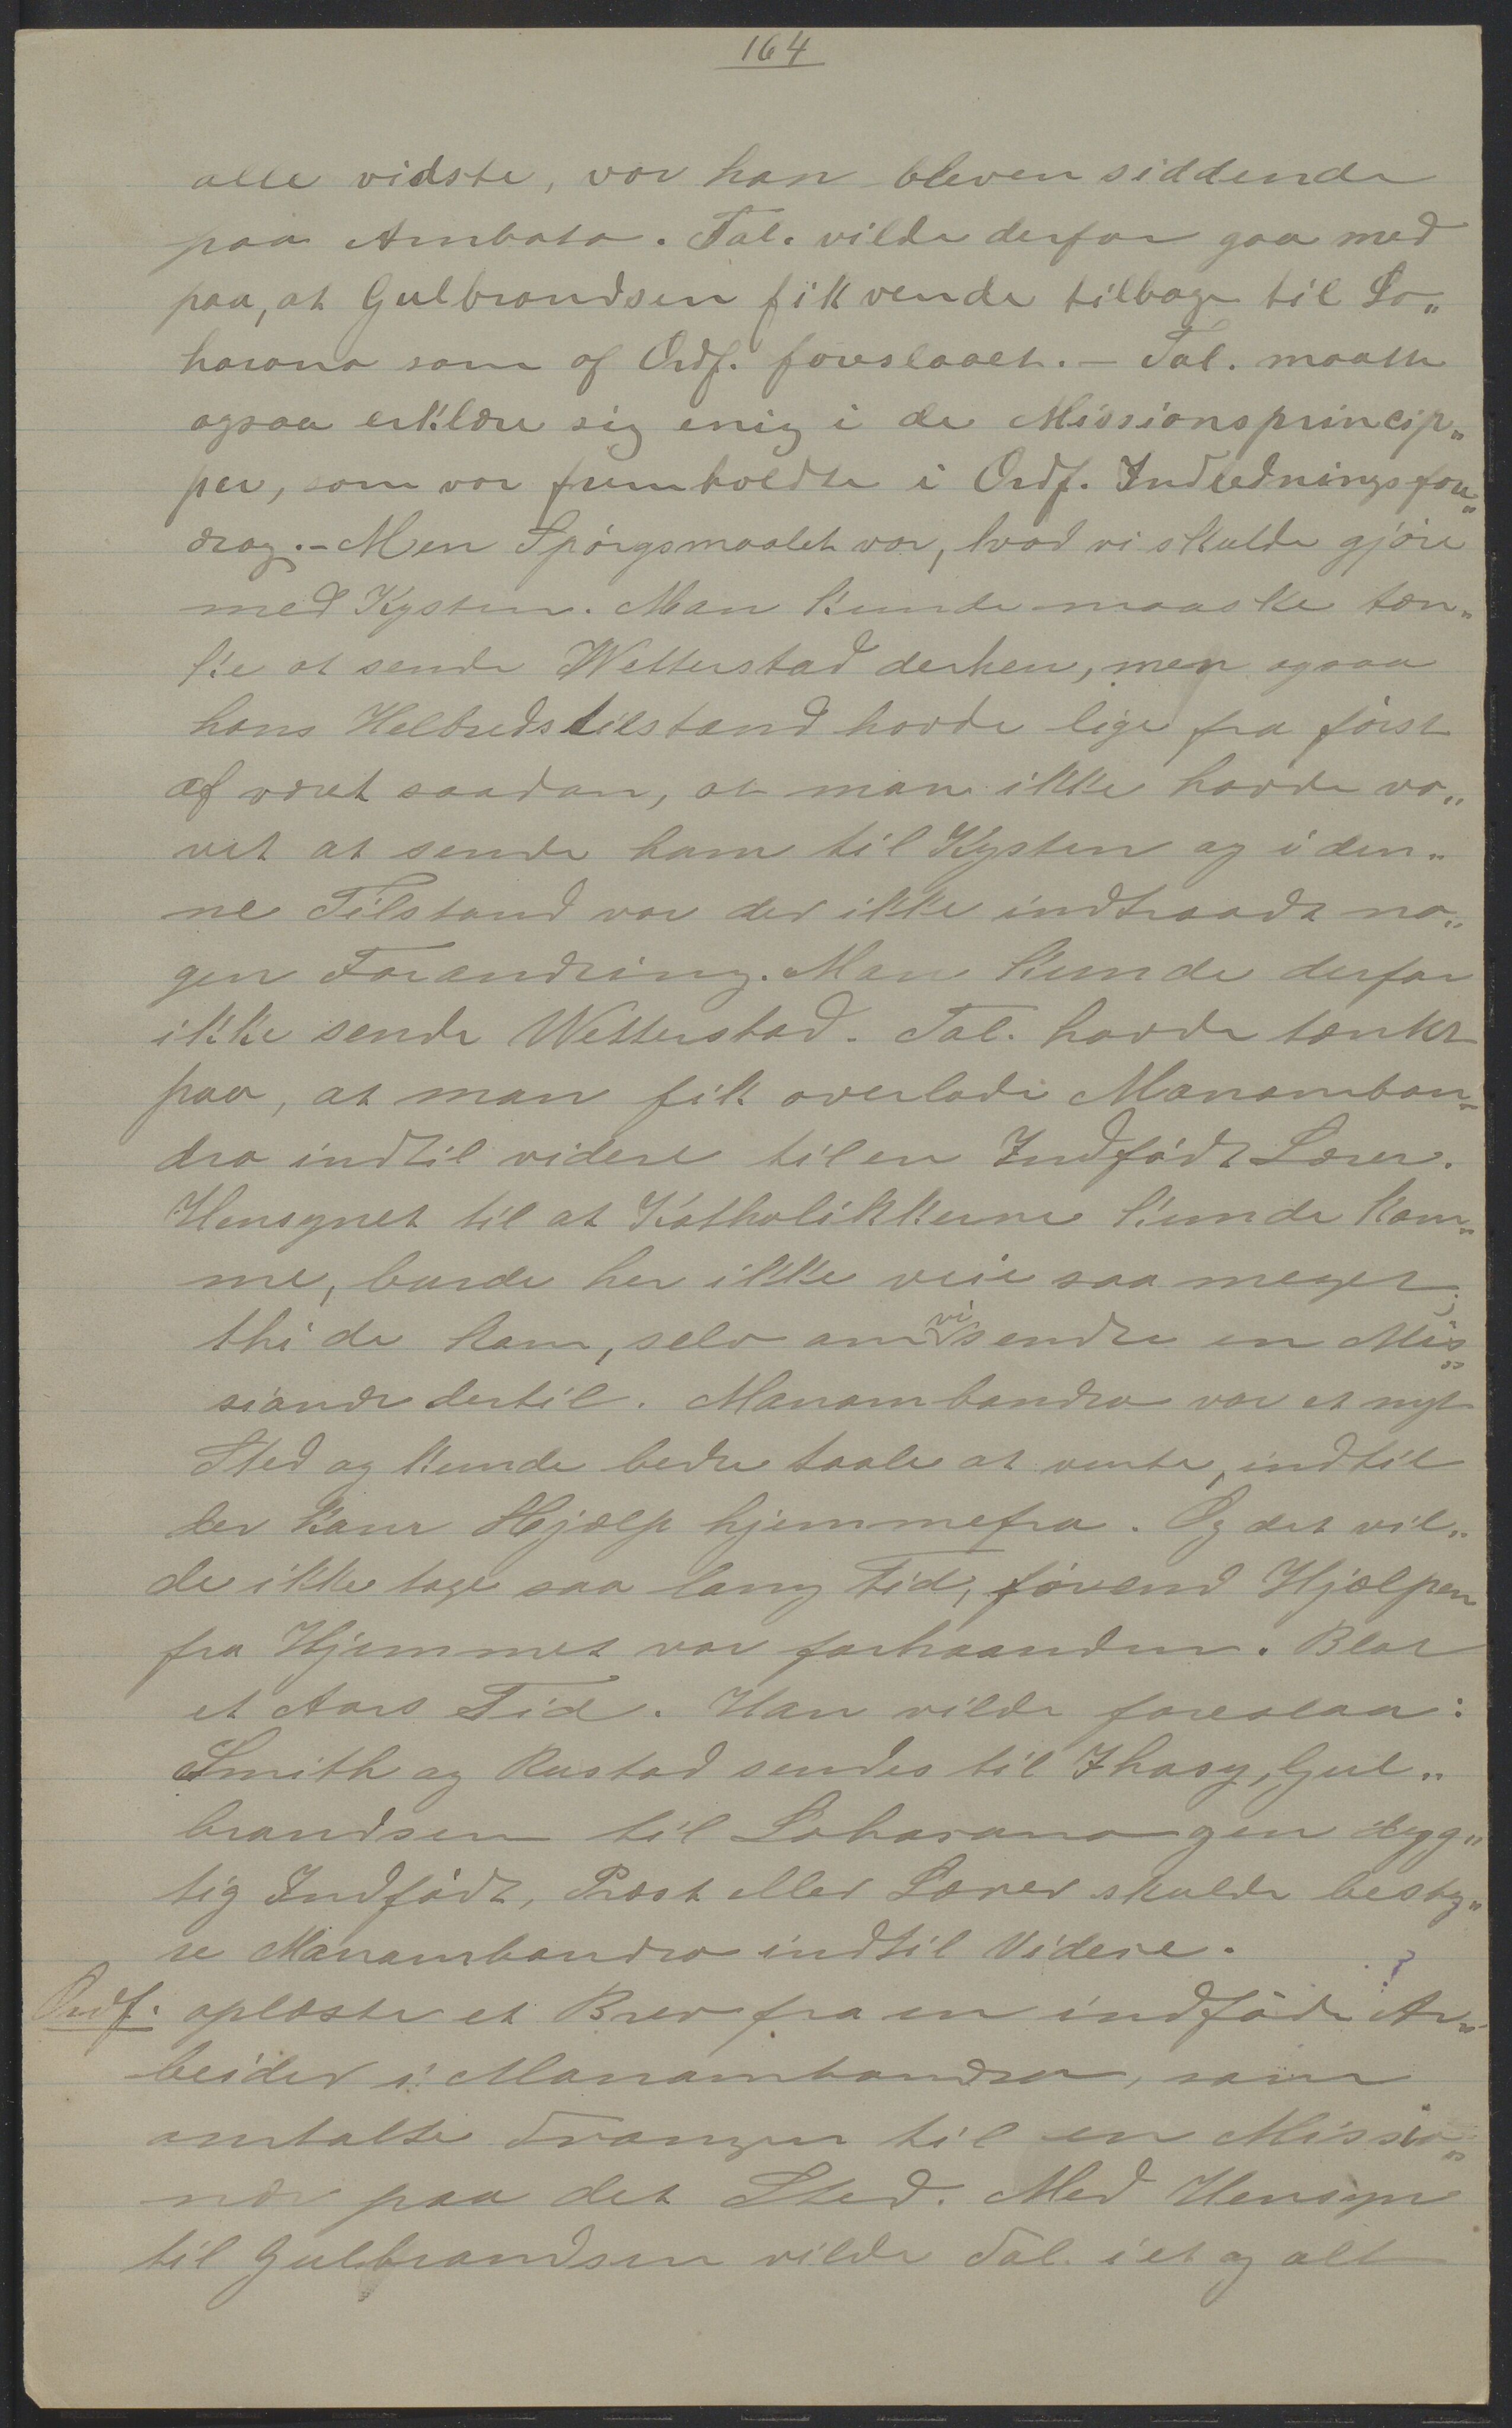 164
alle vidste, var han bleven siddende
paa Ambato. Tal. vilde derfor gaa med
paa, at Gulbrandsen fik vende tilbage til Lo„
harano som af Ordf. foreslaaet. – Tal. maatte
ogsaa erklære sig enig i de Missionsprincip„
per, som var fremholdte i Ordf. Indledningsfore„
drag. – Men Spørgsmaalet var, hvad vi skulde gjøre
med Kysten. Man kunde maaske tæn„
ke at sende Wetterstad derhen, men ogsaa
hans Helbredstilstand havde lige fra først
af været saadan, at man ikke havde vo„
vet at sende ham til Kysten og i den„
ne Tilstand var der ikke indtraadt no„
gen Forandring. Man kunde derfor
ikke sende Wetterstad. Tal. havde tænkt
paa, at man fik overlade Manamban„
dro indtil videre til en Indfødt Lærer.
Hensynet til at Katholikkerne kunde kom„
me, burde her ikke veie saa meget;
thi de kom, selv om vi sendte en Mis„
sionær dertil. Manambondro var et nyt
Sted og kunde bedre taale at vente, indtil
der kom Hjælp hjemmefra. Og det vil„
de ikke tage saa lang Tid, førend Hjælpen
fra Hjemmet var forhaanden. Blot
et Aars Tid. Han vilde foreslaa:
Smith og Rustad sendes til Ihosy, Gul„
brandsen til Loharano og en dyg„
tig Indfødt, Præst eller Lærer skulde besty„
re Manambondro indtil Videre.
Ordf. oplæste et Brev fra en indfødt ? Ar„
beider i Manambondro, som
omtalte Trangen til en Missio„
nær paa det Sted. Med Hensyn
til Gulbrandsen vilde Tal. i et og alt